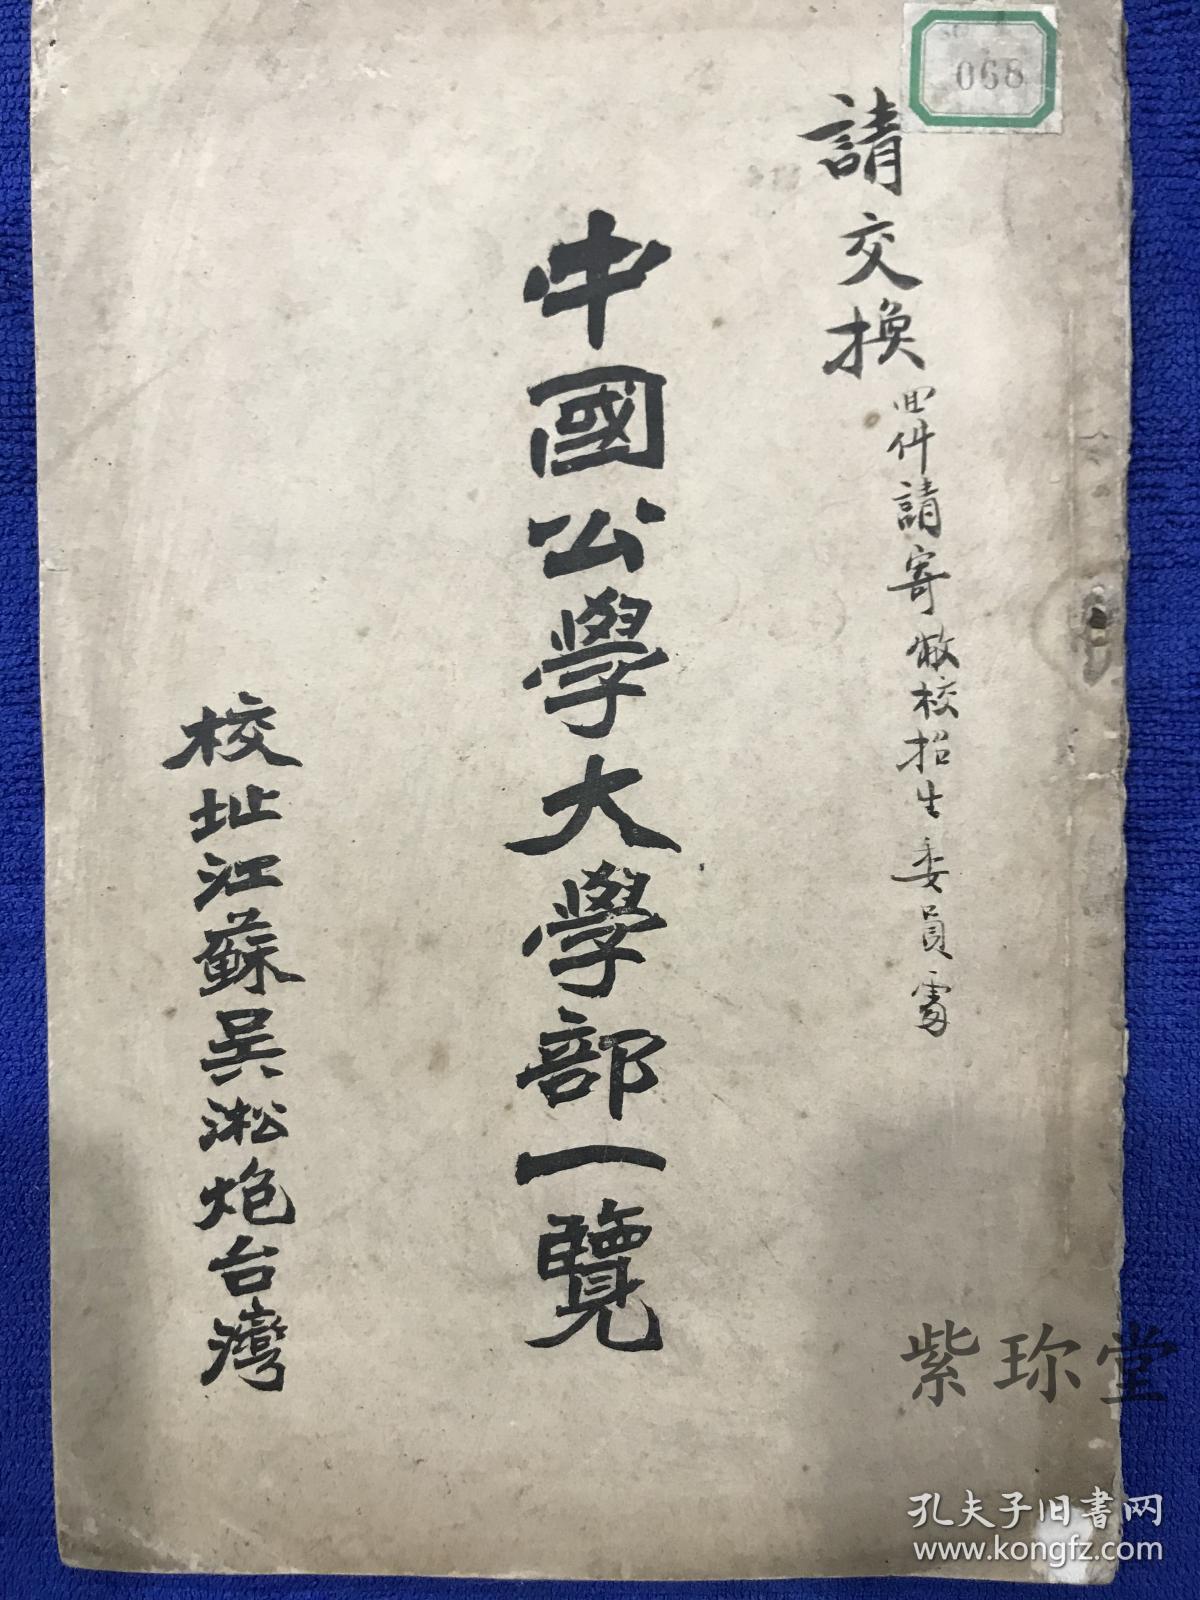 068
請交換
回件請寄敝校招生委員處
中國公學大學部一覽
校址江蘇吳淞炮台灣
紫珎堂
孔夫子旧書网
www.kongfz.com